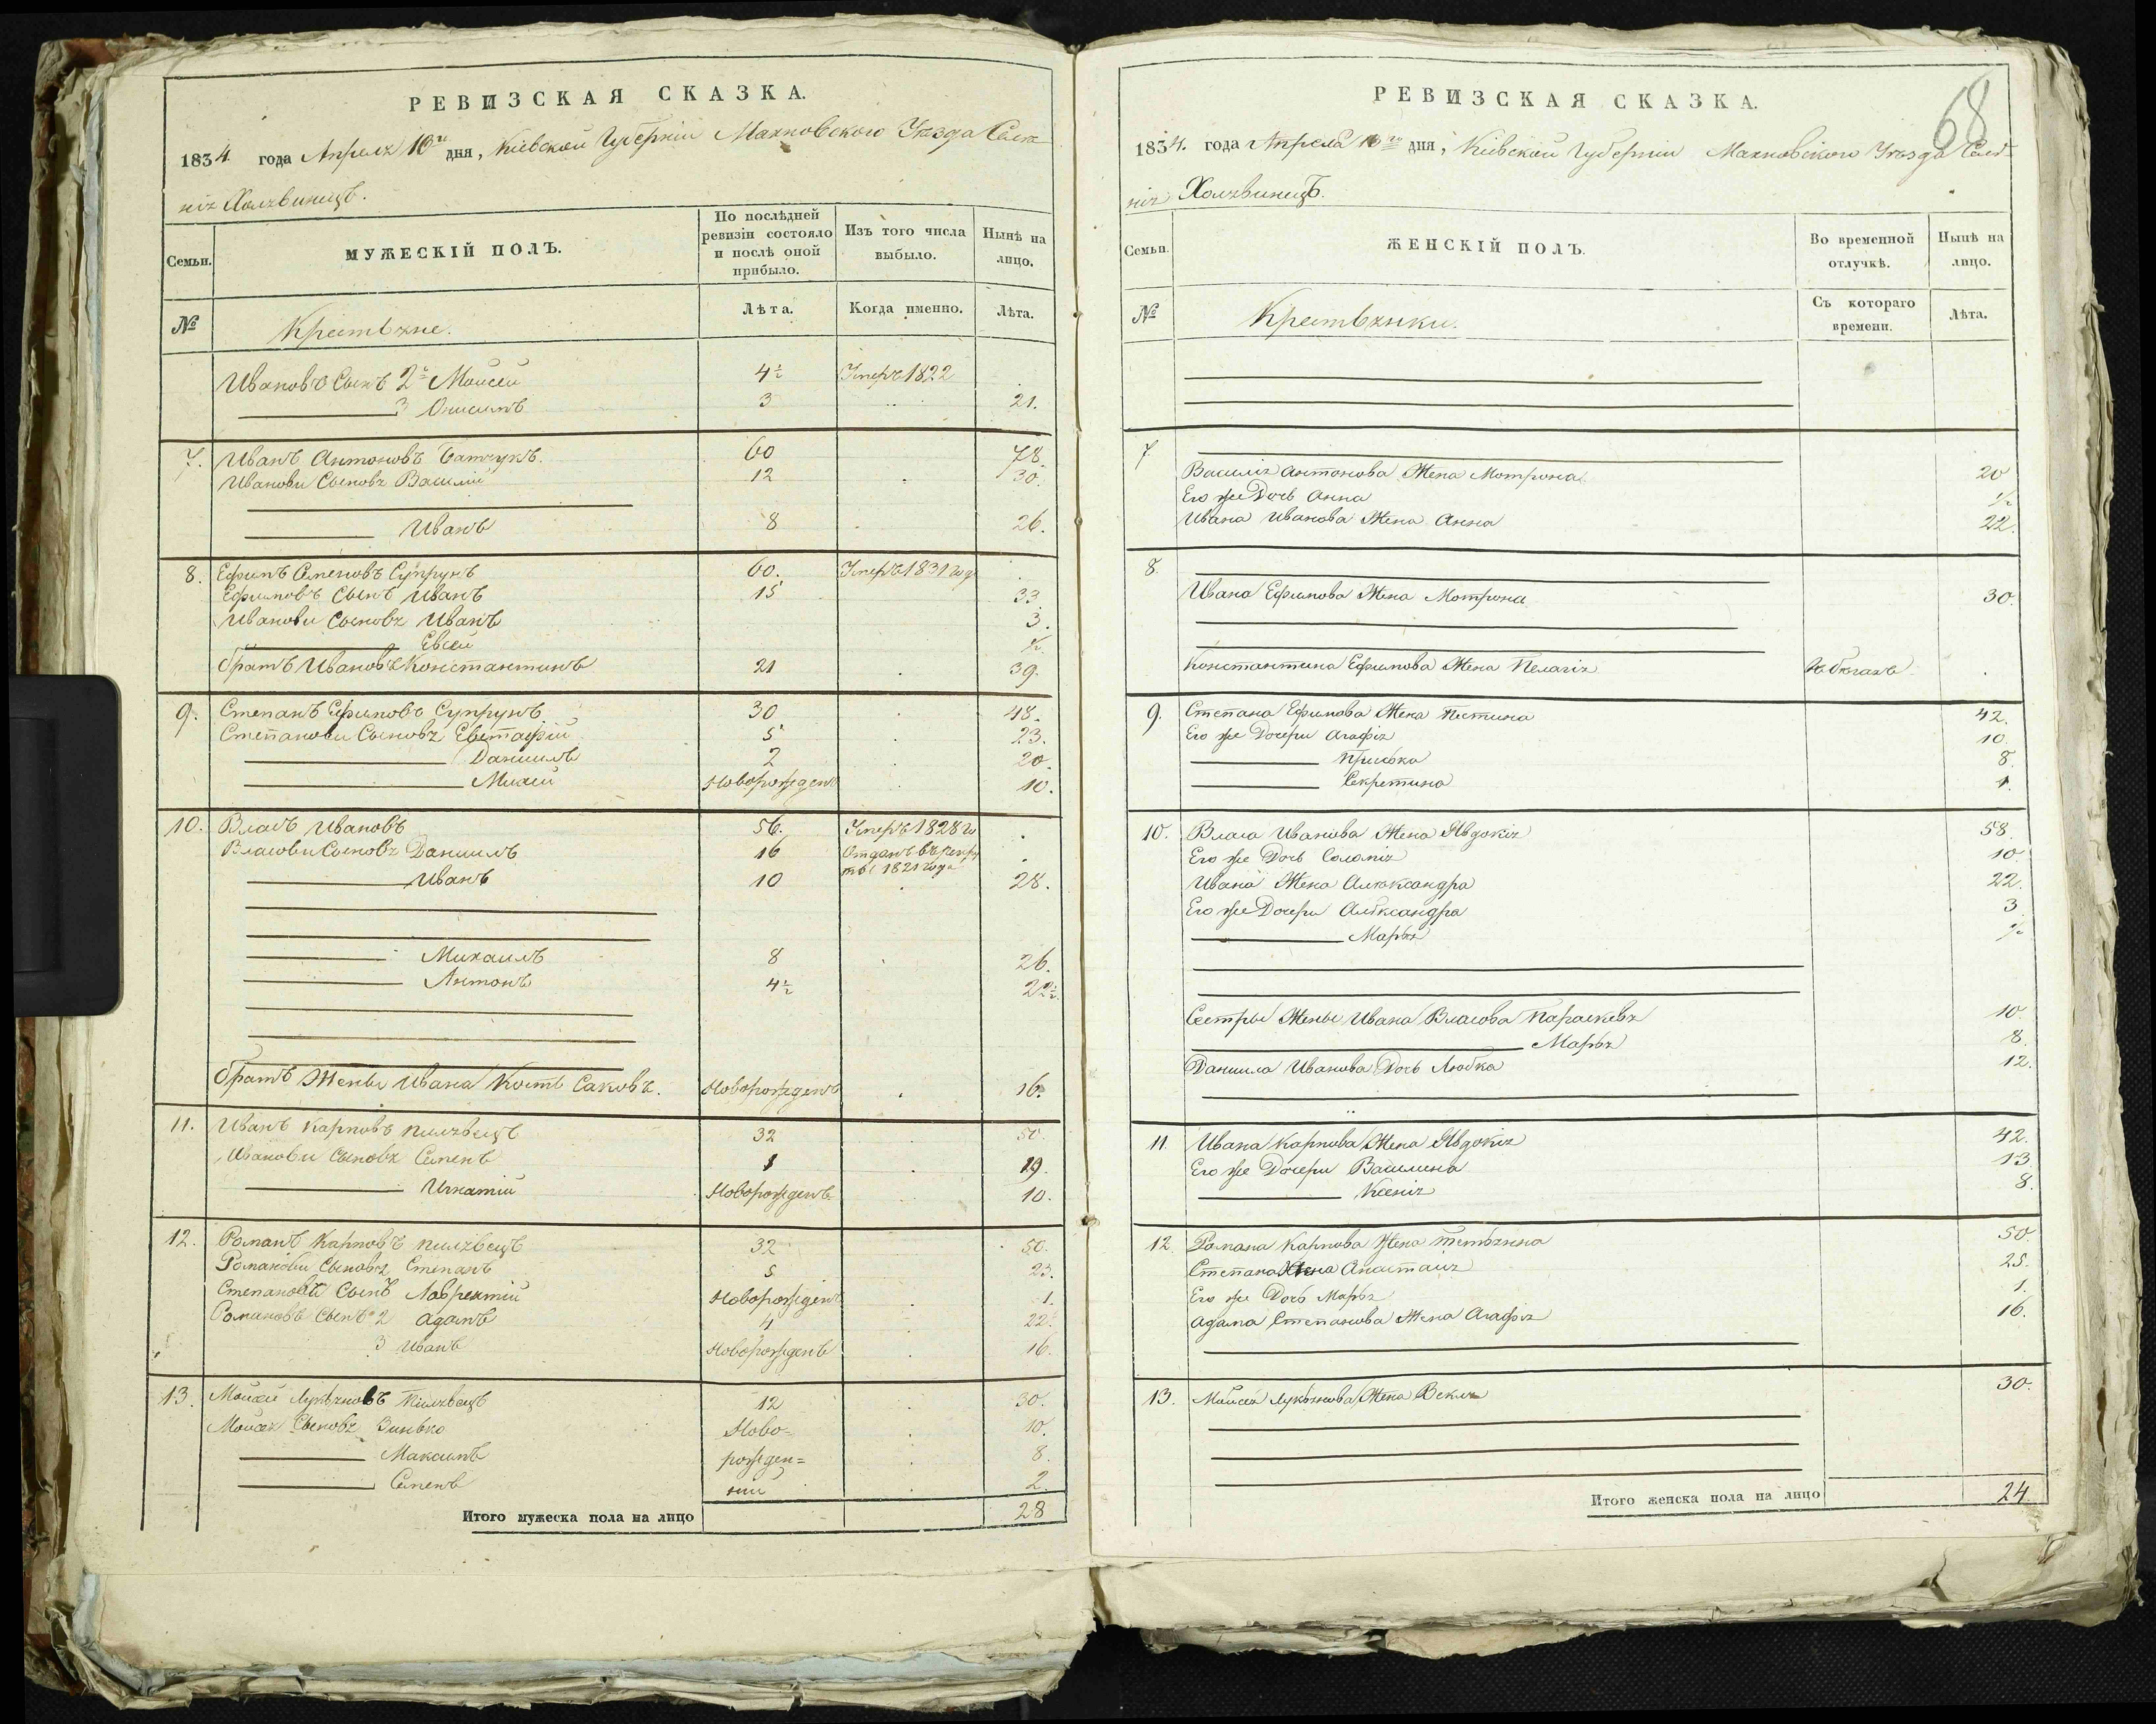 РЕВИЗСКАЯ СКАЗКА.
1834 года Апреля 10го дня, Кіевской Губерніи Махновского Уезда Селе-
нія Холявинецъ.
Семьи.
МУЖЕСКІЙ ПОЛЪ.
По послѣдней ревизіи состояло и послѣ оной прибыло.
Изъ того числа выбыло.
Нынѣ на лицо.
№
Крестьяне.
Лѣта.
Когда именно.
Лѣта.
Ивановъ Сынъ 2й Моисей 4½ Умеръ 1822
3 Онисимъ 3 21.
7. Иванъ Антоновъ 60 78.
Иванови Сыновя Василий 12 30.
Иванъ 8 26.
8. Ефимъ Семеновъ Супрунъ 60. Умеръ 1831 года
Ефимовъ Сынъ Иванъ 15 33.
Иванови Сыновя Иванъ 3.
Евсей ½
братъ Ивановъ Константинъ 21 39.
9. Степанъ Ефимовъ Супрунъ 30 48.
Степанови Сыновя Евстафий 5 23.
Даниилъ 2 20.
Михей Новорожденъ 10.
10. Власъ Ивановъ 56. Умеръ 1828 го
Власови Сыновя Даниилъ 16 Отданъ въ рекру
ты 1821 года
Иванъ 10 28.
Михаилъ 8 26.
Антонъ 4½ 22½.
братъ Жены Ивана Кость Саковъ. Новорожденъ 16.
11. Иванъ Карповъ 32 50.
Иванови Сыновя Семенъ 1 19.
Игнатий Новорожденъ 10.
12. Романъ Карповъ 32 50.
Романови Сыновя Степанъ 5 23.
Степановъ Сынъ Лаврентий Новорожденъ 1.
Романовъ Сынъ 2 Адамъ 4 22.
3 Иванъ Новорожденъ 16.
13. Моисей Лукяновъ 12 30.
Моисея Сыновя Зинько Ново- 10.
Максимъ рожден= 8.
Семенъ ний 2.
Итого мужеска пола на лицо 28
68
РЕВИЗСКАЯ СКАЗКА.
1834. года Апреля 10го дня, Кіевской Губерніи Махновского Уезда Селе-
нія Холявинецъ.
Семьи.
ЖЕНСКІЙ ПОЛЪ.
Во временной отлучкѣ.
Нынѣ на лицо.
№
Крестьянки.
Съ котораго времени.
Лѣта.
7
Василія Антонова Жена Мотрона 20
Его же Дочь Анна ½
Ивана Иванова Жена Анна 22.
8.
Ивана Ефимова Жена Мотрона 30.
Константина Ефимова Жена Пелагія в бегахъ
9. Степана Ефимова Жена Пестина 42.
Его же Дочери Агафія 10.
Приська 8.
Секретина 1.
10. Власа Иванова Жена Явдокія 58.
Его же Дочь Соломія 10.
Ивана Жена Александра 22.
Его же Дочери Александра 3
Марья ½
Сестры Жены Ивана Власова Параскевя 10.
Марья 8.
Даниила Иванова Дочь Любка 12.
11. Ивана Карпова Жена Явдокія 42.
Его же Дочери Василина 13.
Ксенія 8.
12. Романа Карпова Жена Тетьянна 50.
Степана Жена Анастасія 25.
Его же Дочь Марья 1.
Адама Степанова Жена Агафія 16.
13. Моисея Лукянова Жена Векла 30.
Итого женска пола на лицо 24